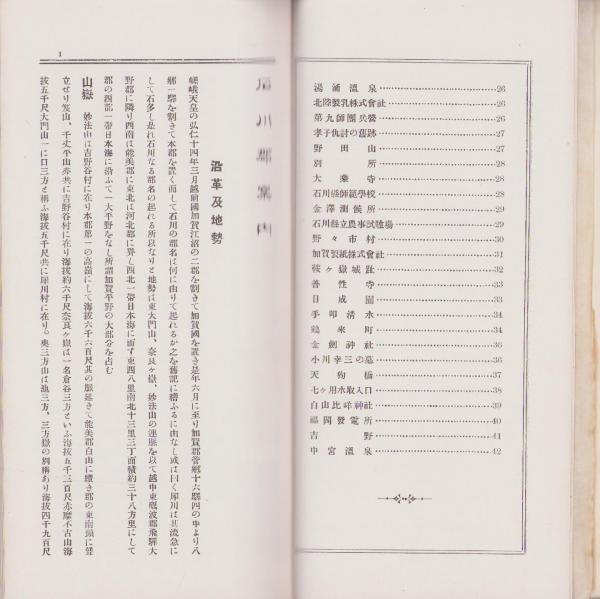 湯涌温泉……26
北陸製乳株式會社……26
第九師團兵營……26
孝子仇討の舊跡……27
野田山……27
別所……28
大乗寺……28
石川縣師範學校……28
金澤測候所……29
石川縣立農事試驗場……29
野々市村……30
加賀製紙株式會社……31
鞍ヶ嶽城趾……32
善性寺……33
日成園……33
手取清水……34
鶴来町……34
金劍神社……36
小川幸三の墓……36
天狗橋……37
七ヶ用水取入口……38
白山比咩神社……39
福岡發電所……40
吉野……41
中宮温泉……42
1
石川郡案内
沿革及地勢
嵯峨天皇の弘仁十四年三月越前國加賀江沼の二郡を割きて加賀國を置き是年六月に至り加賀郡管郷十六驛四の中より八
郷一驛を割きて本郡を置く而して石川の郡名は何に由りて起れるか之を舊記に稽ふるに由なし或は曰く犀川は其流急に
して石多し是れ石川なる郡名の起れる所以なりと地勢は東大門山、奈良ヶ嶽、妙法山の連脈を以て越中東礪波郡飛驒大
野郡に隣り西南は能美郡に東北は河北郡に界し西北一帶日本海に面す東西八里南北十三里三丁面積約三十八方里にして
郡の西部一帶日本海に沿ふて一大平野をなし所謂加賀平野の大部分を占む
山嶽　妙法山は吉野谷村に在り本郡第一の高嶺にして海拔六千六百尺其の脈延きて能美郡白山に續き郡の東南頭に聳
立せり发山、千丈平山亦共に吉野谷村に在り海拔約六千尺奈良ヶ嶽は一名倉谷三方といふ海拔五千三百尺赤摩不古山海
拔五千尺大門山一に口三方と稱ふ海拔五千尺共に犀川村に在り。奥三方山は池三方、三方嶽の別稱あり海拔四千九百尺